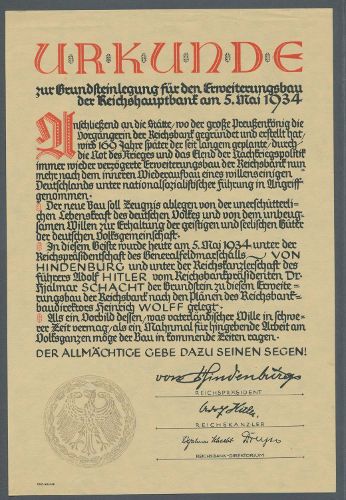 URKUNDE
zur Grundsteinlegung für den Erweiterungsbau
der Reichshauptbank am 5. Mai 1934
Anschließend an die Stätte, wo der große Preußenkönig die
Vorgängerin der Reichsbank gegründet und erstellt hat,
wird 169 Jahre später der seit langem geplante, durch
die Not des Krieges und das Elend der Nachkriegspolitik
immer wieder verzögerte Erweiterungsbau der Reichsbank nun-
mehr nach dem inneren Wiederaufbau eines willenseinigen
Deutschlands unter nationalsozialistischer Führung in Angriff
genommen.
Der neue Bau soll Zeugnis ablegen von der unerschütterli-
chen Lebenskraft des deutschen Volkes und von dem unbeug-
samen Willen zur Erhaltung der geistigen und seelischen Güter
der deutschen Volksgemeinschaft.
In diesem Geiste wurde heute am 5. Mai 1934 unter der
Reichspräsidentschaft des Generalfeldmarschalls VON
HINDENBURG und unter der Reichskanzlerschaft des
Führers Adolf HITLER vom Reichsbankpräsidenten Dr.
Hjalmar SCHACHT der Grundstein zu diesem Erweite-
rungsbau der Reichsbank nach den Plänen des Reichsbank-
baudirektors Heinrich WOLFF gelegt.
Als ein Vorbild dessen, was vaterländischer Wille in schwe-
rer Zeit vermag, als ein Mahnmal für hingebende Arbeit am
Volksganzen möge der Bau in kommende Zeiten ragen.
DER ALLMÄCHTIGE GEBE DAZU SEINEN SEGEN!
von Hindenburg
REICHSPRÄSIDENT
Adolf Hitler
REICHSKANZLER
Hjalmar Schacht Dreyse
REICHSBANK-DIREKTORIUM